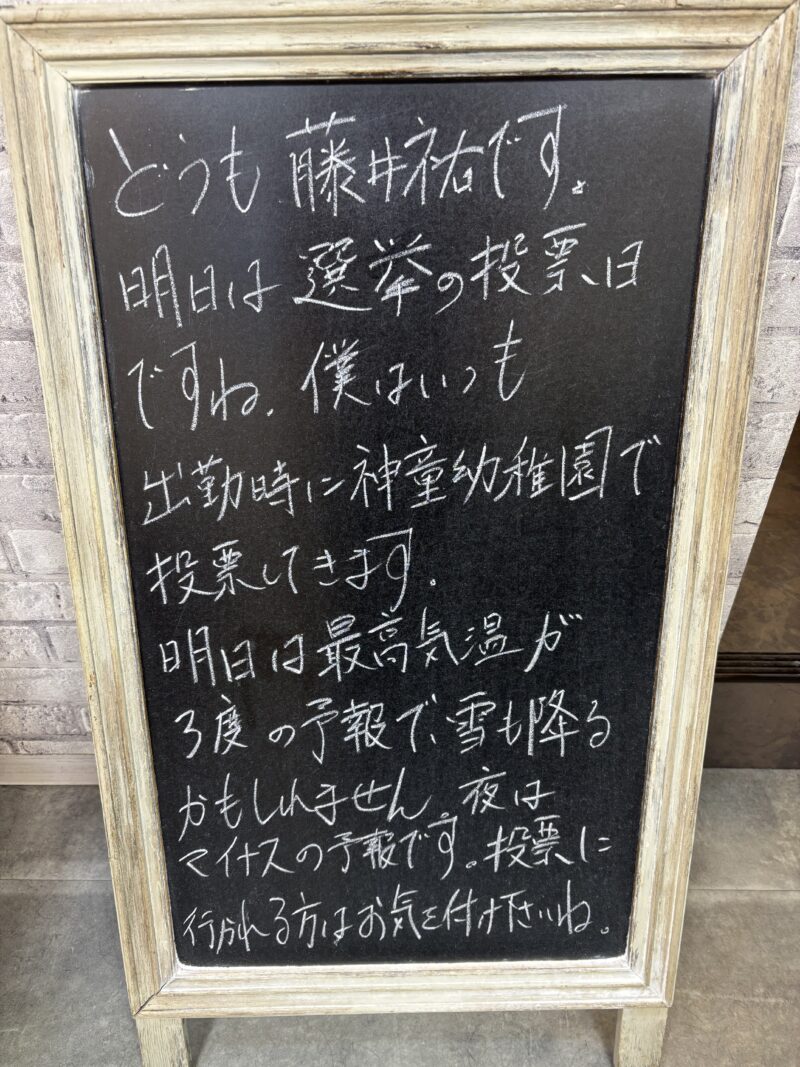 どうも 藤井祐です。
明日は 選挙の投票日
ですね. 僕はいつも
出勤時に神童幼稚園で
投票してきます.
明日は最高気温が
3度の予報で、雪も降る
かもしれません。夜は
マイナスの予報です。投票に
行かれる方はお気を付け下さいね。